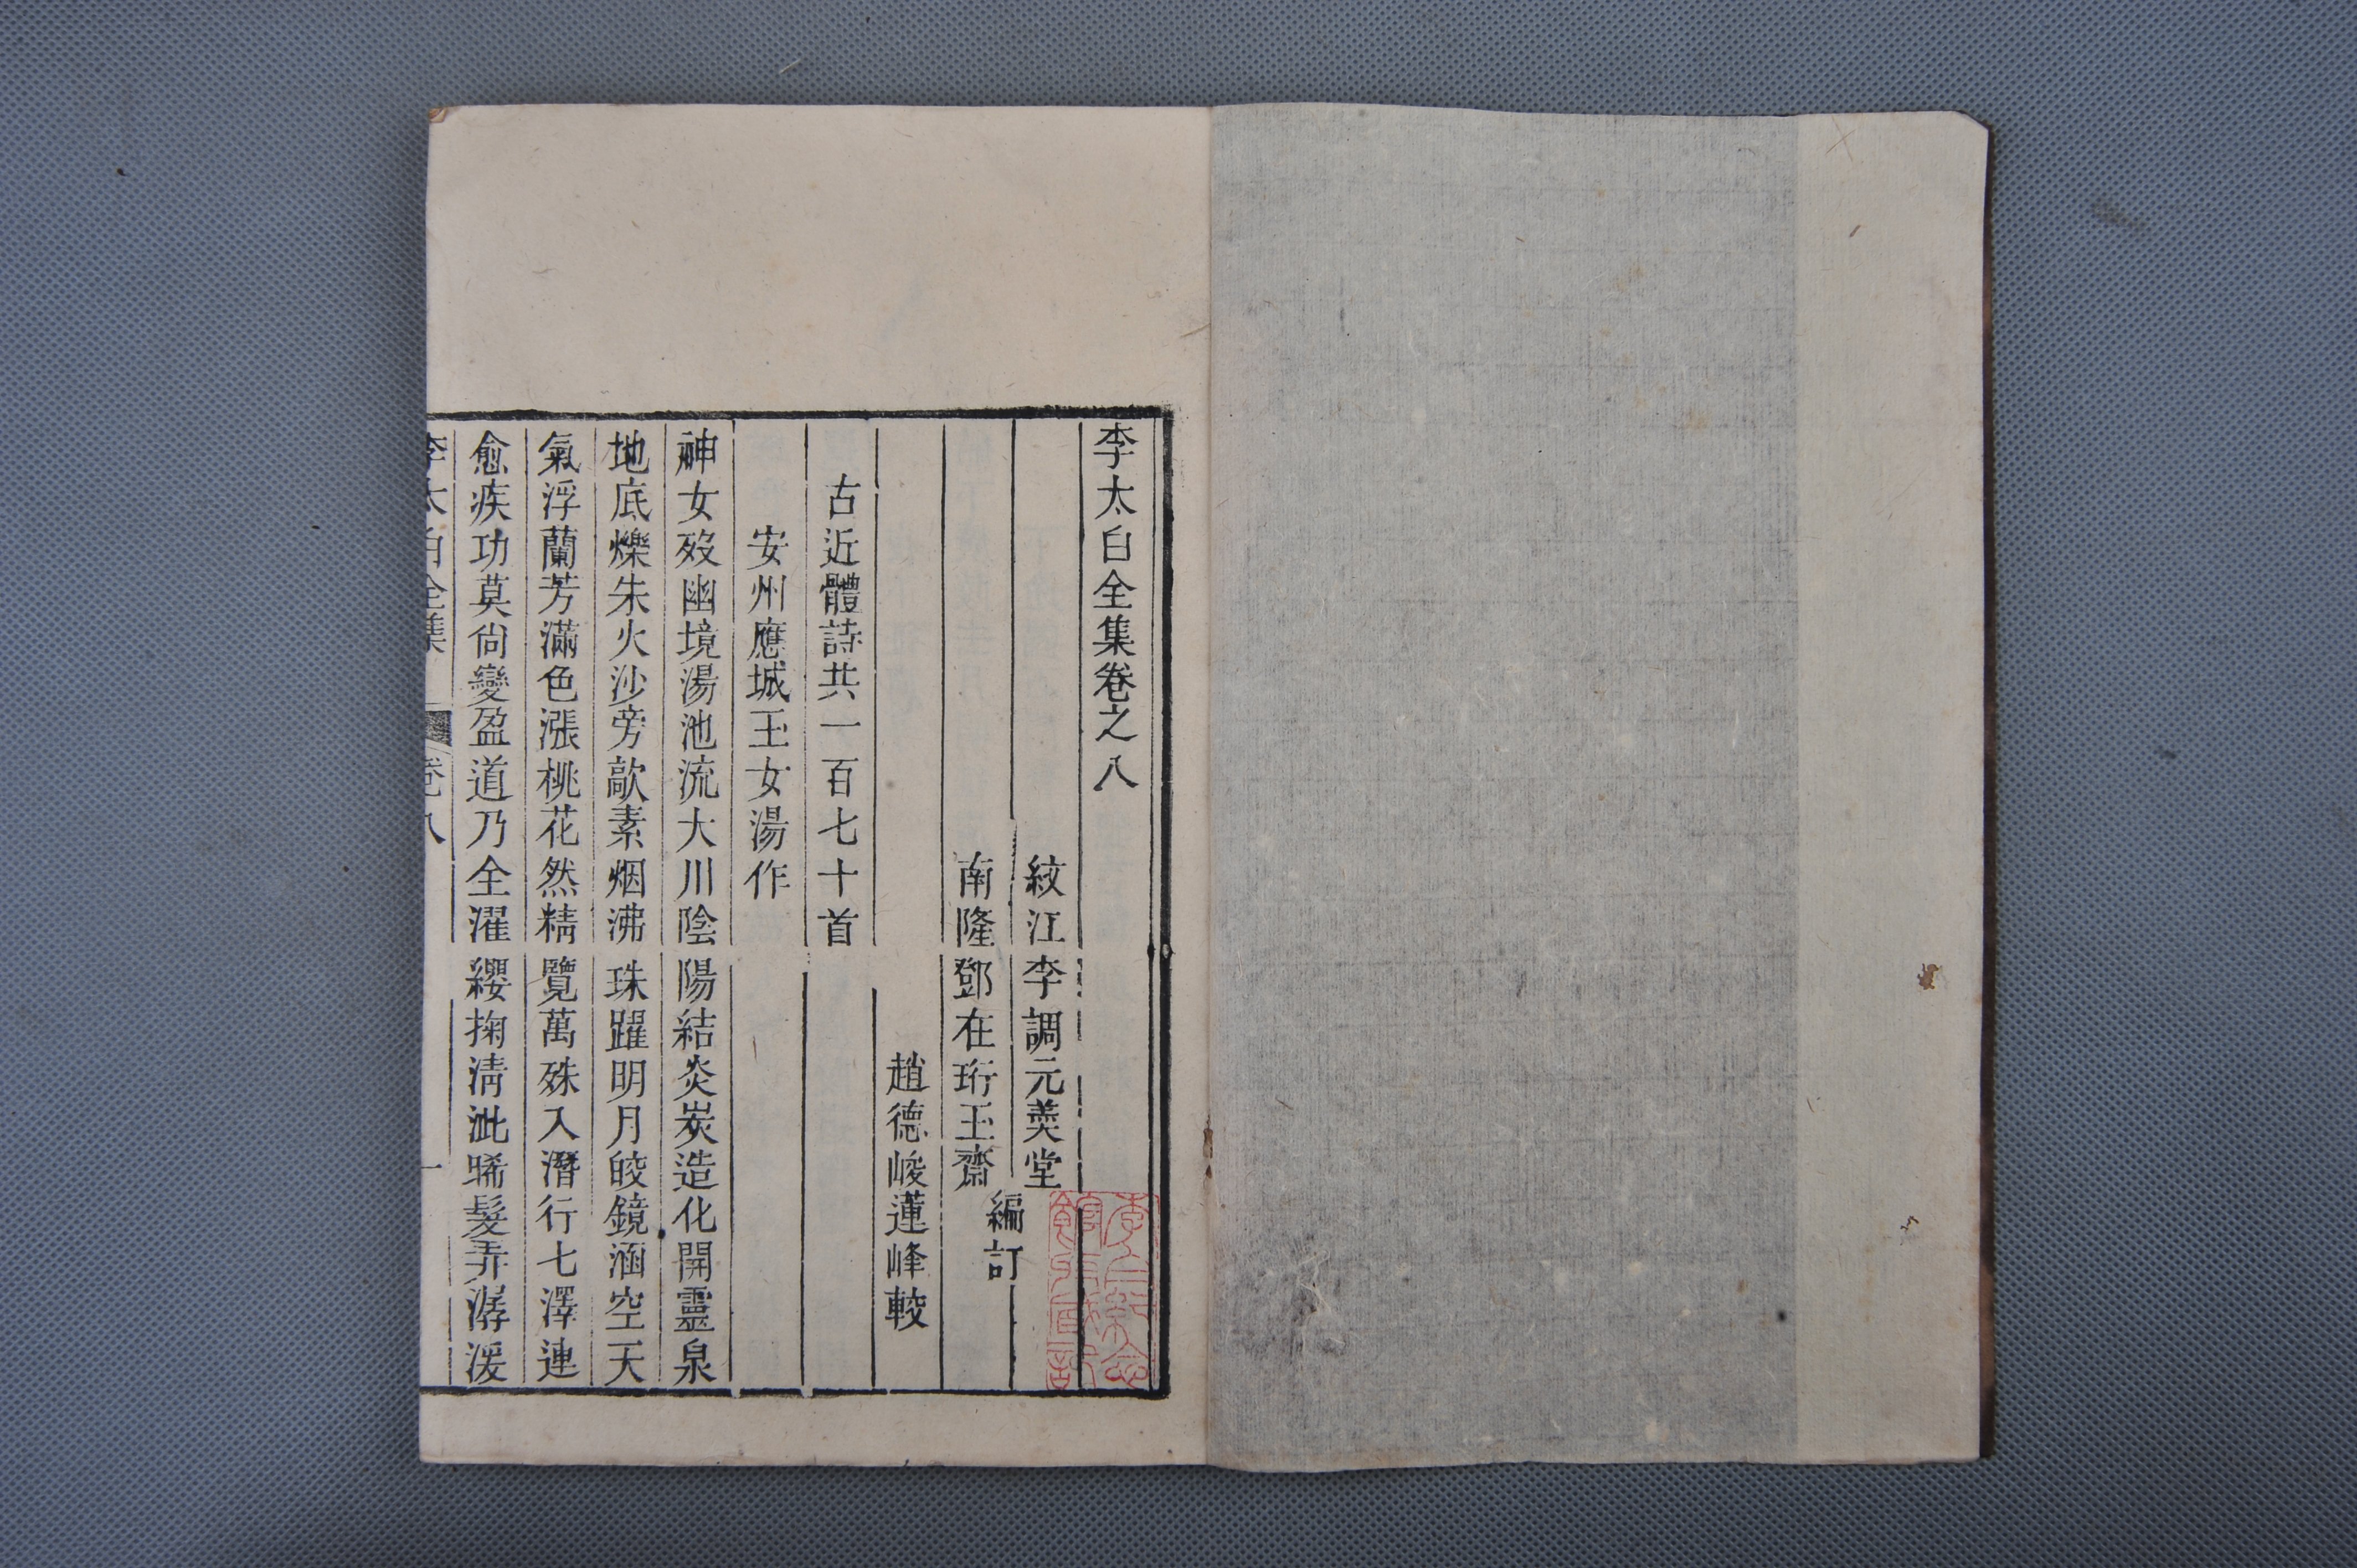 李太白全集卷之八
紋江李調元羹堂
南隆鄧在珩玉齋
編訂
趙德峻蓮峰較
古近體詩共一百七十首
安州應城玉女湯作
神女歿幽境湯池流大川陰陽結炎炭造化開靈泉
地底爍朱火沙旁歊素烟沸珠躍明月皎鏡涵空天
氣浮蘭芳滿色漲桃花然精覽萬殊入潛行七澤連
愈疾功莫尙變盈道乃全濯纓掬淸泚晞髮弄潺湲
李太白全集
卷八
一